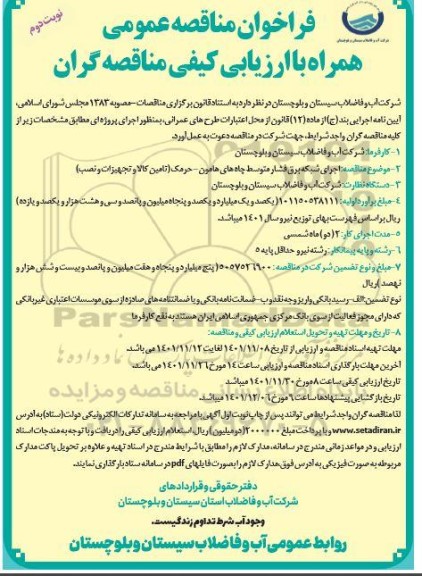 نوبت دوم
فراخوان مناقصه عمومی
همراه با ارزیابی کیفی مناقصه گران
شرکت آب و فاضلاب سیستان و بلوچستان در نظر دارد به استناد قانون برگزاری مناقصات-مصوبه ۱۳۸۳ مجلس شورای اسلامی،
آیین نامه اجرایی بند (ج) از ماده (۱۲) قانون از محل اعتبارات طرح های عمرانی، بمنظور اجرای پروژه ای مطابق مشخصات زیر از
کلیه مناقصه گران واجد شرایط، جهت شرکت در مناقصه دعوت به عمل آورد.
۱-کارفرما: شرکت آب و فاضلاب سیستان و بلوچستان
۲-موضوع مناقصه: اجرای شبکه برق فشار متوسط چاه های هامون - حرمک (تامین کالا و تجهیزات و نصب)
۳-دستگاه نظارت: شرکت آب و فاضلاب سیستان و بلوچستان
۴-مبلغ برآورد اولیه:
ریال بر اساس فهرست بهای توزیع نیرو سال ۱۴۰۱ میباشد.
۵-مدت اجرای کار: ۲ (دو) ماه شمسی
۶-رشته و پایه پیمانکار: رشته نیرو حداقل پایه ۵
۷-مبلغ و نوع تضمین شرکت در مناقصه: (پنج میلیارد و پنجاه و هفت میلیون و پانصد و بیست و شش هزار و
نهصد) ریال
نوع تضمین: الف-رسید بانکی واریز وجه نقد و ب-ضمانت نامه بانکی و یا ضمانتنامه های صادره از سوی موسسات اعتباری غیر بانکی
که دارای مجوز فعالیت از سوی بانک مرکزی جمهوری اسلامی ایران هستند به نفع کارفرما
۸-تاریخ و مهلت تهیه و تحویل استعلام ارزیابی کیفی و مناقصه:
مهلت تهیه اسناد مناقصه و ارزیابی از تاریخ ۱۴۰۱/۱۱/۰۸ لغایت ۱۴۰۱/۱۱/۱۲ می باشد.
آخرین مهلت بارگذاری اسناد مناقصه و ارزیابی ساعت ۱۴ مورخ ۱۴۰۱/۱۱/۲۶ می باشد.
تاریخ ارزیابی کیفی ساعت ۸ مورخ ۱۴۰۱/۱۱/۳۰ میباشد
تاریخ بازگشایی پیشنهادها ساعت ۸ مورخ ۱۴۰۱/۱۲/۰۶ میباشد.
لذا مناقصه گران واجد شرایط می توانند پس از چاپ نوبت اول آگهی با مراجعه به سامانه تدارکات الکترونیکی دولت (ستاد) به آدرس
www.setadiran.ir و با پرداخت مبلغ ۲۰۰۰۰۰۰ (دو میلیون) ریال، استعلام ارزیابی کیفی را دریافت و با توجه به مندرجات اسناد
ارزیابی و در مواعد زمانی مندرج در سامانه، مدارک لازم را مطابق با شرایط مندرج در اسناد تهیه و علاوه بر تحویل پاکت مدارک
مربوطه به صورت فیزیکی به آدرس فوق، مدارک لازم را بصورت فایلهای pdf در سامانه ستاد بارگذاری نمایند.
دفتر حقوقی و قراردادهای
شرکت آب و فاضلاب استان سیستان و بلوچستان
وجود آب شرط تداوم زندگیست.
روابط عمومی آب و فاضلاب سیستان و بلوچستان